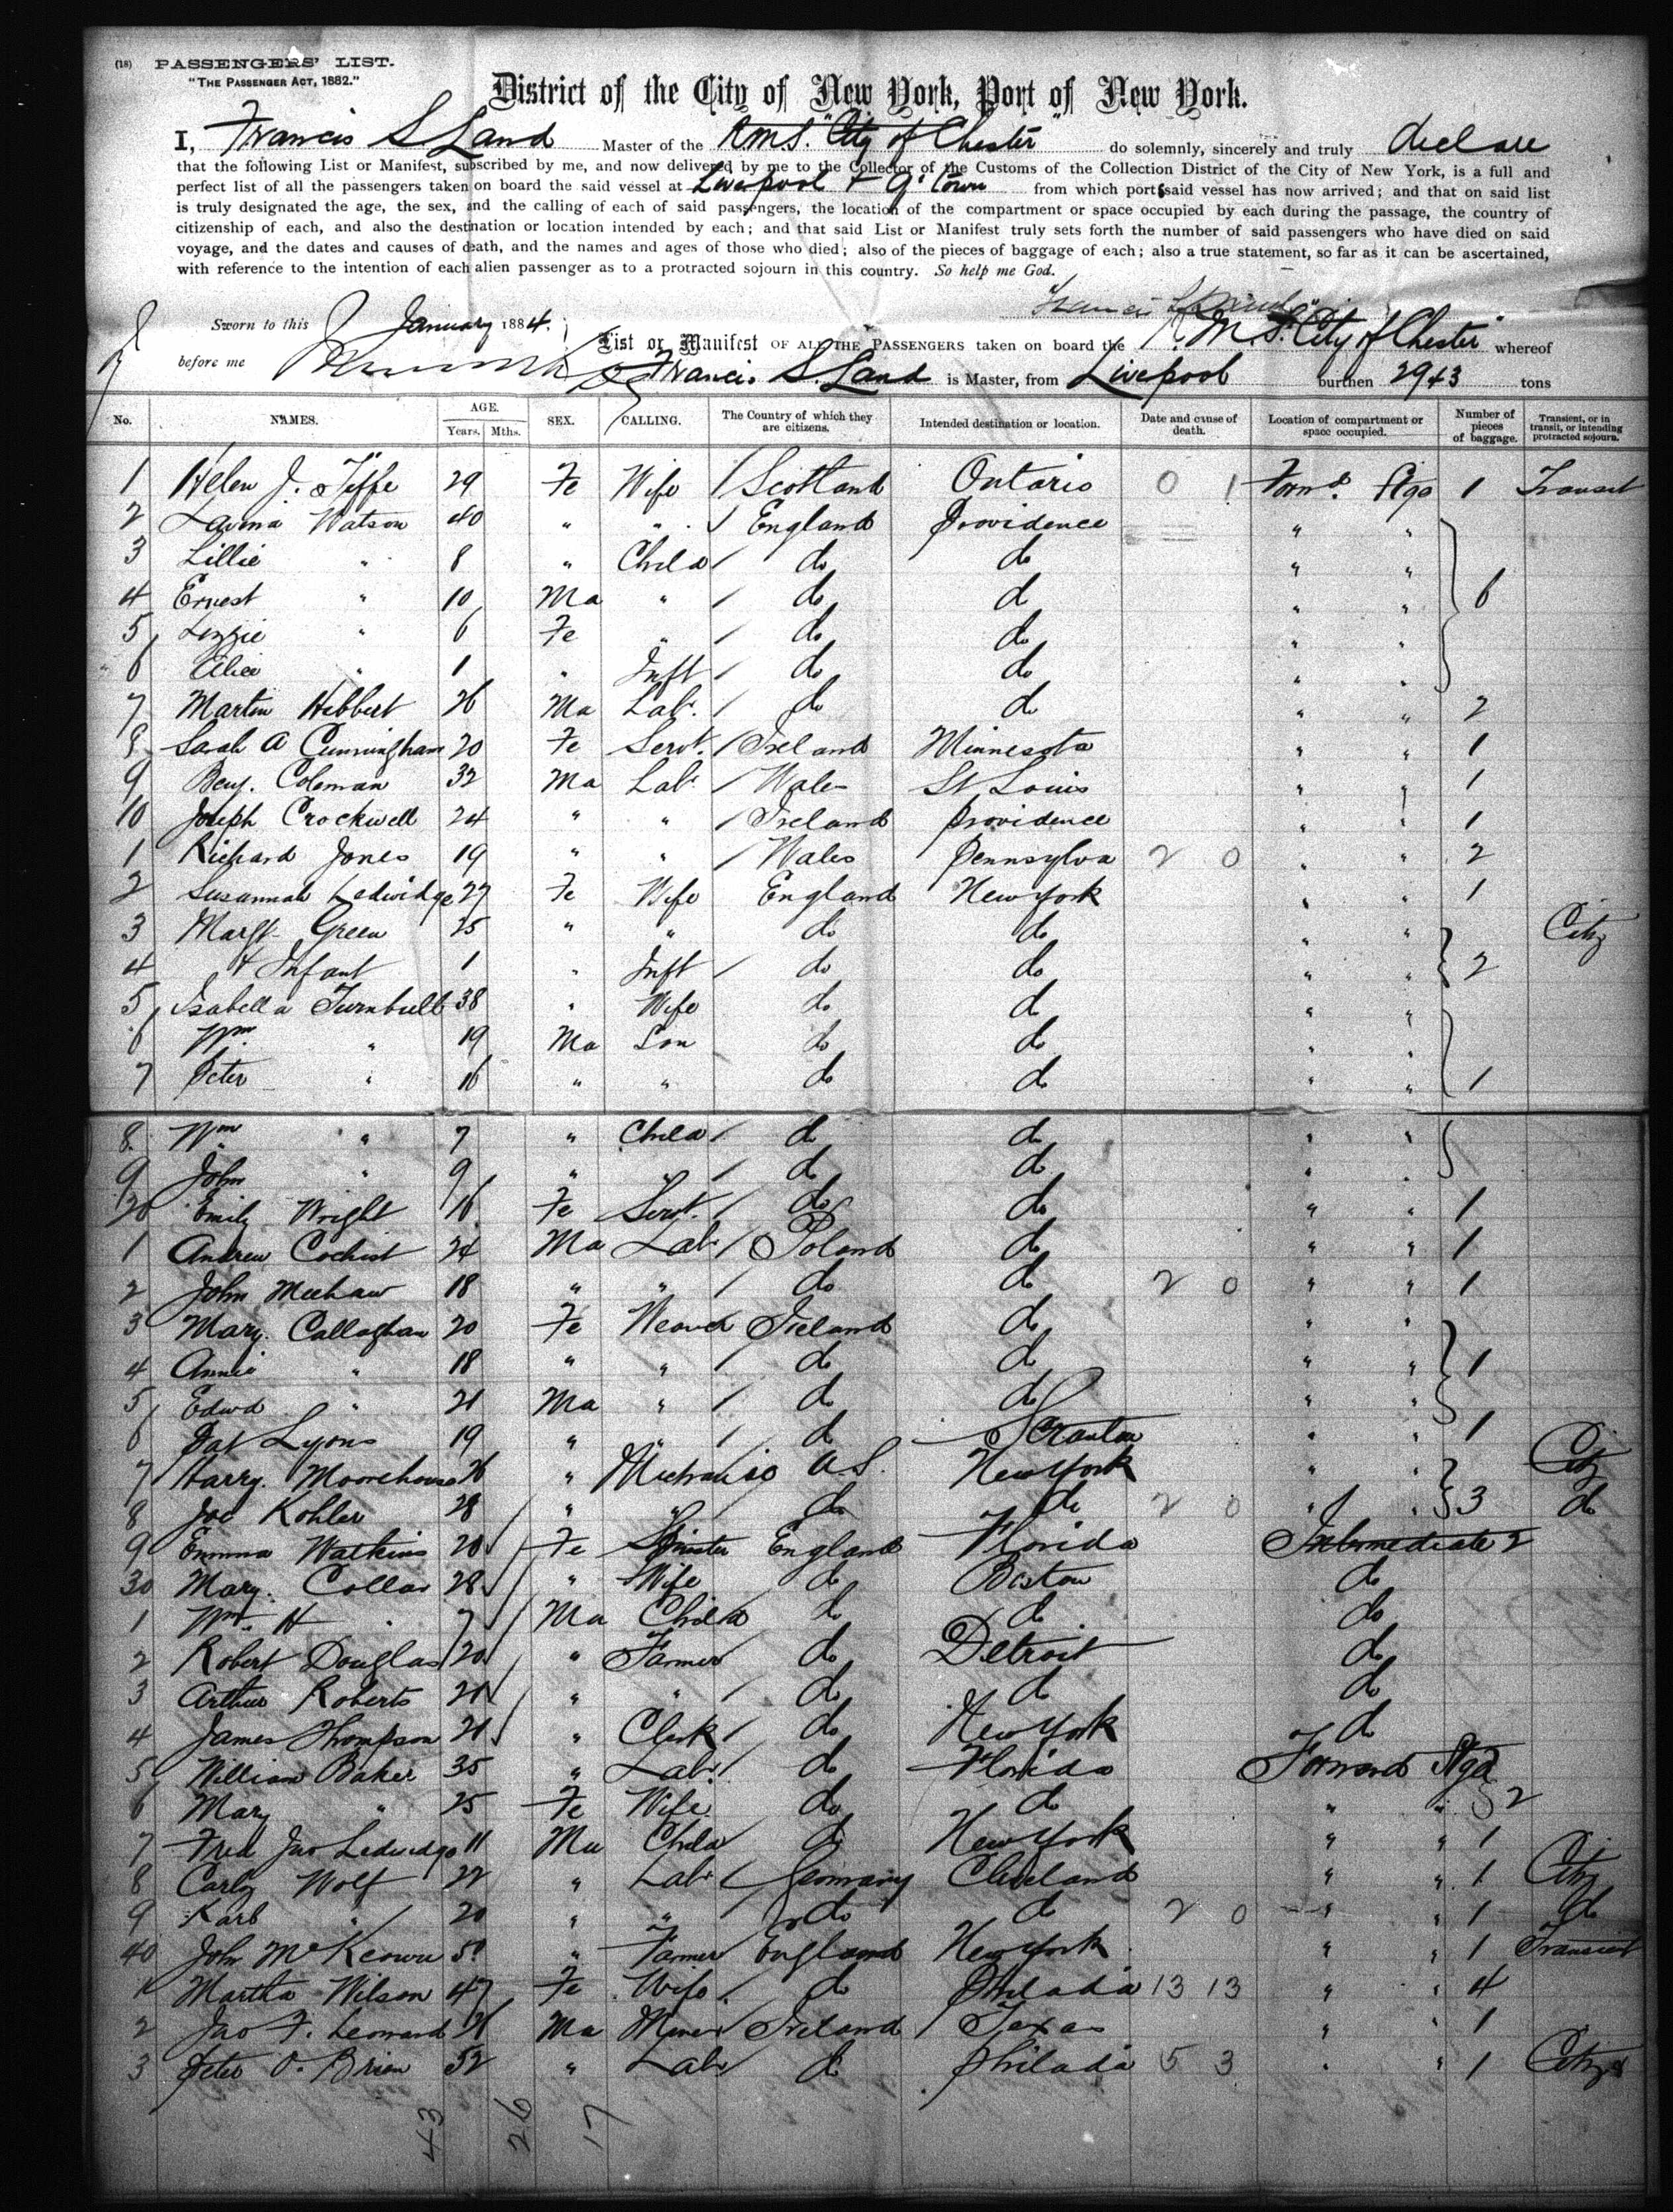 (18) PASSENGERS' LIST.
"THE PASSENGER ACT, 1882."
District of the City of New York, Port of New York.
I, Francis S Land Master of the R.M.S. "City of Chester" do solemnly, sincerely and truly declare
that the following List or Manifest, subscribed by me, and now delivered by me to the Collector of the Customs of the Collection District of the City of New York, is a full and
perfect list of all the passengers taken on board the said vessel at Liverpool & Q'town from which port said vessel has now arrived; and that on said list
is truly designated the age, the sex, and the calling of each of said passengers, the location of the compartment or space occupied by each during the passage, the country of
citizenship of each, and also the destination or location intended by each; and that said List or Manifest truly sets forth the number of said passengers who have died on said
voyage, and the dates and causes of death, and the names and ages of those who died; also of the pieces of baggage of each; also a true statement, so far as it can be ascertained,
with reference to the intention of each alien passenger as to a protracted sojourn in this country. So help me God.
Sworn to this January 1884.
List or Manifest OF ALL THE PASSENGERS taken on board the R.M.S. "City of Chester" whereof
before me Francis S. Land is Master, from Liverpool burthen 2943 tons
No. NAMES. AGE. Years. Mths. SEX. CALLING. The Country of which they are citizens. Intended destination or location. Date and cause of death. Location of compartment or space occupied. Number of pieces of baggage. Transient, or in transit, or intending protracted sojourn.
1 Helen J. 29 Fe Wife Scotland Ontario 0 1 Forwd. Stge 1 Transit
2 Lavinia Watson 40 " " England Providence " "
3 Lillie " 8 " Child do do " "
4 Ernest " 10 Ma " do do " " 6
5 Lizzie " 6 Fe " do do " "
6 Alice " 1 " Inft do do " "
7 Martin Hibbert 26 Ma Labr. do do " " 2
8 Sarah A Cunningham 20 Fe Servt. Ireland Minnesota " " 1
9 Benj. Coleman 32 Ma Labr Wales St Louis " " 1
10 Joseph Crockwell 24 " " Ireland Providence " " 1
1 Richard Jones 19 " " Wales Pennsylva 2 0 " " 2
2 Susannah Ledwidge 27 Fe Wife England New York " " 1
3 Margt Green 25 " " do do " " Citz
4 & Infant 1 " Inft do do " " 2
5 Isabella Turnbull 38 " Wife do do " "
6 Wm. " 19 Ma Son do do " "
7 Peter " 16 " " do do " " 1
8 Wm " 7 " Child do do " "
9 John " 9 " " do do " "
20 Emily Wright 16 Fe Servt. do do " " 1
1 Andrew Cochist 24 Ma Labr Poland do " " 1
2 John Meehaw 18 " " do do 2 0 " " 1
3 Mary Callaghan 20 Fe Weaver Ireland do " "
4 Annie " 18 " " do do " " 1
5 Edwd " 21 Ma " do do " "
6 Pat Lyons 19 " " do Scranton " " 1
7 Harry Moorehouse 26 " Mechanic U.S. New York " " Citz
8 Joe Kohler 28 " " do do 2 0 " " 3 do
9 Emma Watkins 20 Fe Spinster England Florida Intermediate 2
30 Mary Collar 28 " Wife do Boston do
1 Wm. H " 7 Ma Child do do do
2 Robert Douglas 20 " Farmer do Detroit do
3 Arthur Roberts 21 " " do do do
4 James Thompson 21 " Clerk do New York do
5 William Baker 35 " Labr. do Florida Forward Stge
6 Mary " 25 Fe Wife do do " " 2
7 Fred Jno Ledwidge 11 Ma Child do New York " " 1
8 Carly Wolf 22 " Labr Germany Cleveland " " 1 Citz
9 Karl " 20 " " do do 2 0 " " 1 do
40 John McKeown 51 " Farmer England New York " " 1 Transient
1 Martha Wilson 47 Fe Wife do Philada 13 13 " " 4
2 Jno F. Leonard 26 Ma Miner Ireland Texas " " 1
3 Peter O'Brien 52 " Labr do Philada 5 3 " " 1 Citz
43 26 17